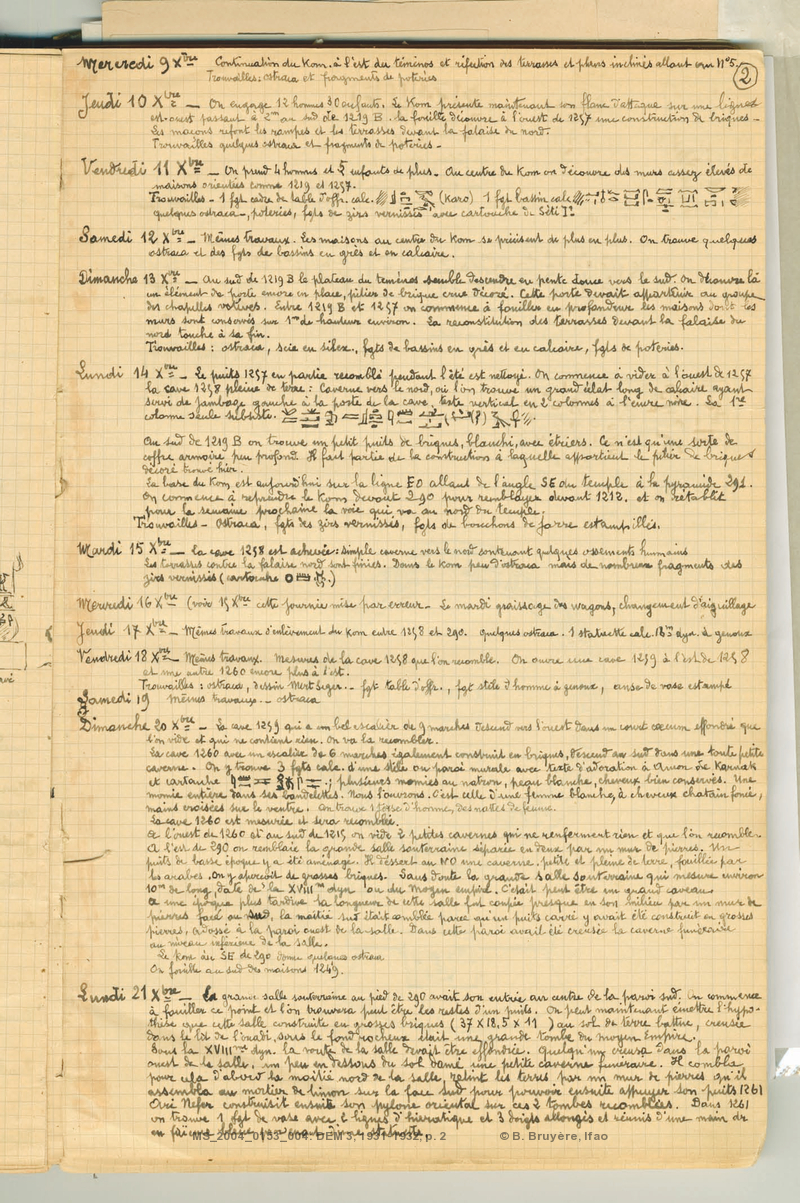 2
Mercredi 9 Xbre Continuation du Kom. à l'est du téménos et réfection des terrasses et plans inclinés allant au N°5.
Trouvailles: ostraca et fragments de poteries
Jeudi 10 Xbre — On engage 12 hommes 30 enfants. Le Kom présente maintenant son flanc d'attaque sur une ligne
est-ouest passant à 2m au sud de 1219 B. La fouille découvre à l'ouest de 1257 une construction de briques -
Les maçons refont les rampes et les terrasses devant la falaise du nord.
Trouvailles quelques ostraca et fragments de poteries -
Vendredi 11 Xbre — On prend 4 hommes et 5 enfants de plus. Au centre du Kom on découvre des murs assez élevés de
maisons orientées comme 1219 et 1257.
Trouvailles - 1 fgt cadre de table d'offr. calc. (Karo) 1 fgt bassin calc
quelques ostraca -, poteries, fgts de zirs vernissés avec cartouche de Séti Ier
Samedi 12 Xbre — Mêmes travaux. Les maisons au centre du Kom se précisent de plus en plus. On trouve quelques
ostraca et des fgts de bassins en grès et en calcaire.
Dimanche 13 Xbre — Au sud de 1219 B le plateau du téménos semble descendre en pente douce vers le sud. On découvre là
un élément de porte encore en place, pilier de brique crue décoré. Cette porte devait appartenir au groupe
des chapelles votives. Entre 1219 B et 1257 on commence à fouiller en profondeur les maisons dont les
murs sont conservés sur 1m de hauteur environ. La reconstitution des terrasses devant la falaise du
nord touche à sa fin.
Trouvailles : ostraca, scie en silex., fgts de bassins en grès et en calcaire, fgts de poteries.
Lundi 14 Xbre — Le puits 1257 en partie recomblé pendant l'été est nettoyé. On commence à vider à l'ouest de 1257
la cave 1258 pleine de terre : caverne vers le nord, où l'on trouve un grand éclat long de calcaire ayant
servi de jambage gauche à la porte de la cave, texte vertical en 2 colonnes à l'encre noire. La 1re
colonne seule subsiste.
Au sud de 1219 B on trouve un petit puits de briques, blanchi, avec étriers. Ce n'est qu'une sorte de
coffre armoire peu profond. Il fait partie de la construction à laquelle appartient le pilier de briques
décoré trouvé hier.
La base du Kom est aujourd'hui sur la ligne EO allant de l'angle SE du temple à la pyramide 291.
On commence à reprendre le Kom devant 290 pour remblayer devant 1212. et on rétablit
pour la semaine prochaine la voie qui va au nord du temple.
Trouvailles - Ostraca, fgts des zirs vernissés, fgts de bouchons de jarre estampillés.
Mardi 15 Xbre — La cave 1258 est achevée : simple caverne vers le nord contenant quelques ossements humains
Les terrasses contre la falaise nord sont finies. Dans le Kom peu d'ostraca mais de nombreux fragments des
zirs vernissés (cartouche )
Mercredi 16 Xbre (voir 15 Xbre cette journée mise par erreur - Le mardi graissage des wagons, changement d'aiguillage
Jeudi 17 Xbre — Mêmes travaux d'enlèvement du Kom entre 1258 et 290. Quelques ostraca. 1 statuette calc. 18me dyn. à genoux
Vendredi 18 Xbre — Mêmes travaux. Mesures de la cave 1258 que l'on recomble. On ouvre une cave 1259 à l'est de 1258
et une autre 1260 encore plus à l'est.
Trouvailles : ostraca, dessin Mert Seger - fgt table d'offr., fgt stèle d'homme à genoux, anse de vase estampé
Samedi 19 Mêmes travaux - ostraca
Dimanche 20 Xbre — La cave 1259 qui a un bel escalier de 9 marches descend vers l'ouest dans un court caecum effondré que
l'on vide et qui ne contient rien. On va la recombler.
La cave 1260 avec un escalier de 6 marches également construit en briques, descend au sud dans une toute petite
caverne. On y trouve 3 fgts calc. d'une stèle ou paroi murale avec texte d'adoration à Amon de Karnak
et cartouche ; plusieurs momies au natron, peau blanche, cheveux bien conservés. Une
momie entière dans ses bandelettes. Nous l'ouvrons. C'est celle d'une femme blanche, à cheveux chatain foncé,
mains croisées sur le ventre. On trouve 1 tête d'homme, des nattes de femme.
La cave 1260 est mesurée et sera recomblée.
A l'ouest de 1260 et au sud de 1215 on vide 2 petites cavernes qui ne renferment rien et que l'on recomble.
A l'est de 290 on remblaie la grande salle souterraine séparée en deux par un mur de pierres. Un
puits de basse époque y a été aménagé. Il dessert au NO une caverne petite et pleine de terre, fouillée par
les arabes. On y aperçoit de grosses briques. Sans doute la grande salle souterraine qui mesure environ
10m de long, date de la XVIIIme dyn ou du Moyen empire. C'était peut être un grand caveau.
A une époque plus tardive la longueur de cette salle fut coupée presque en son milieu par un mur de
pierres face au sud, la moitié sud était comblée parce qu'un puits carré y avait été construit en grosses
pierres, adossé à la paroi ouest de la salle. Dans cette paroi avait été creusée la caverne funéraire
au niveau inférieur de la salle.
Le Kom au SE de 290 donne quelques ostraca
On fouille au sud des maisons 1249.
Lundi 21 Xbre — La grande salle souterraine au pied de 290 avait son entrée au centre de la paroi sud. On commence
à fouiller ce point et l'on trouvera peut être les restes d'un puits. On peut maintenant émettre l'hypo-
thèse que cette salle construite en grosses briques (37 X 18,5 X 11) au sol de terre battue, creusée
dans le lit de l'ouadi, sous le fond rocheux était une grande tombe du moyen Empire.
Sous la XVIIIme dyn. la voute de la salle devait être effondrée. Quelqu'un creusa dans la paroi
ouest de la salle, un peu en dessous du sol damé une petite caverne funéraire. Il combla
pour cela d'abord la moitié nord de la salle, retint les terres par un mur de pierres qu'il
assembla au mortier de limon sur la face sud pour pouvoir ensuite appuyer son puits 1261
Ari Nefer construisit ensuite son pylone oriental sur ces 2 tombes recomblées. Dans 1261
on trouve 1 fgt de vase avec 2 lignes d'hiératique et 3 doigts allongés et réunis d'une main de
MS_2004_0153_004. DEM 3, 1931-1932, p. 2 © B. Bruyère, Ifao